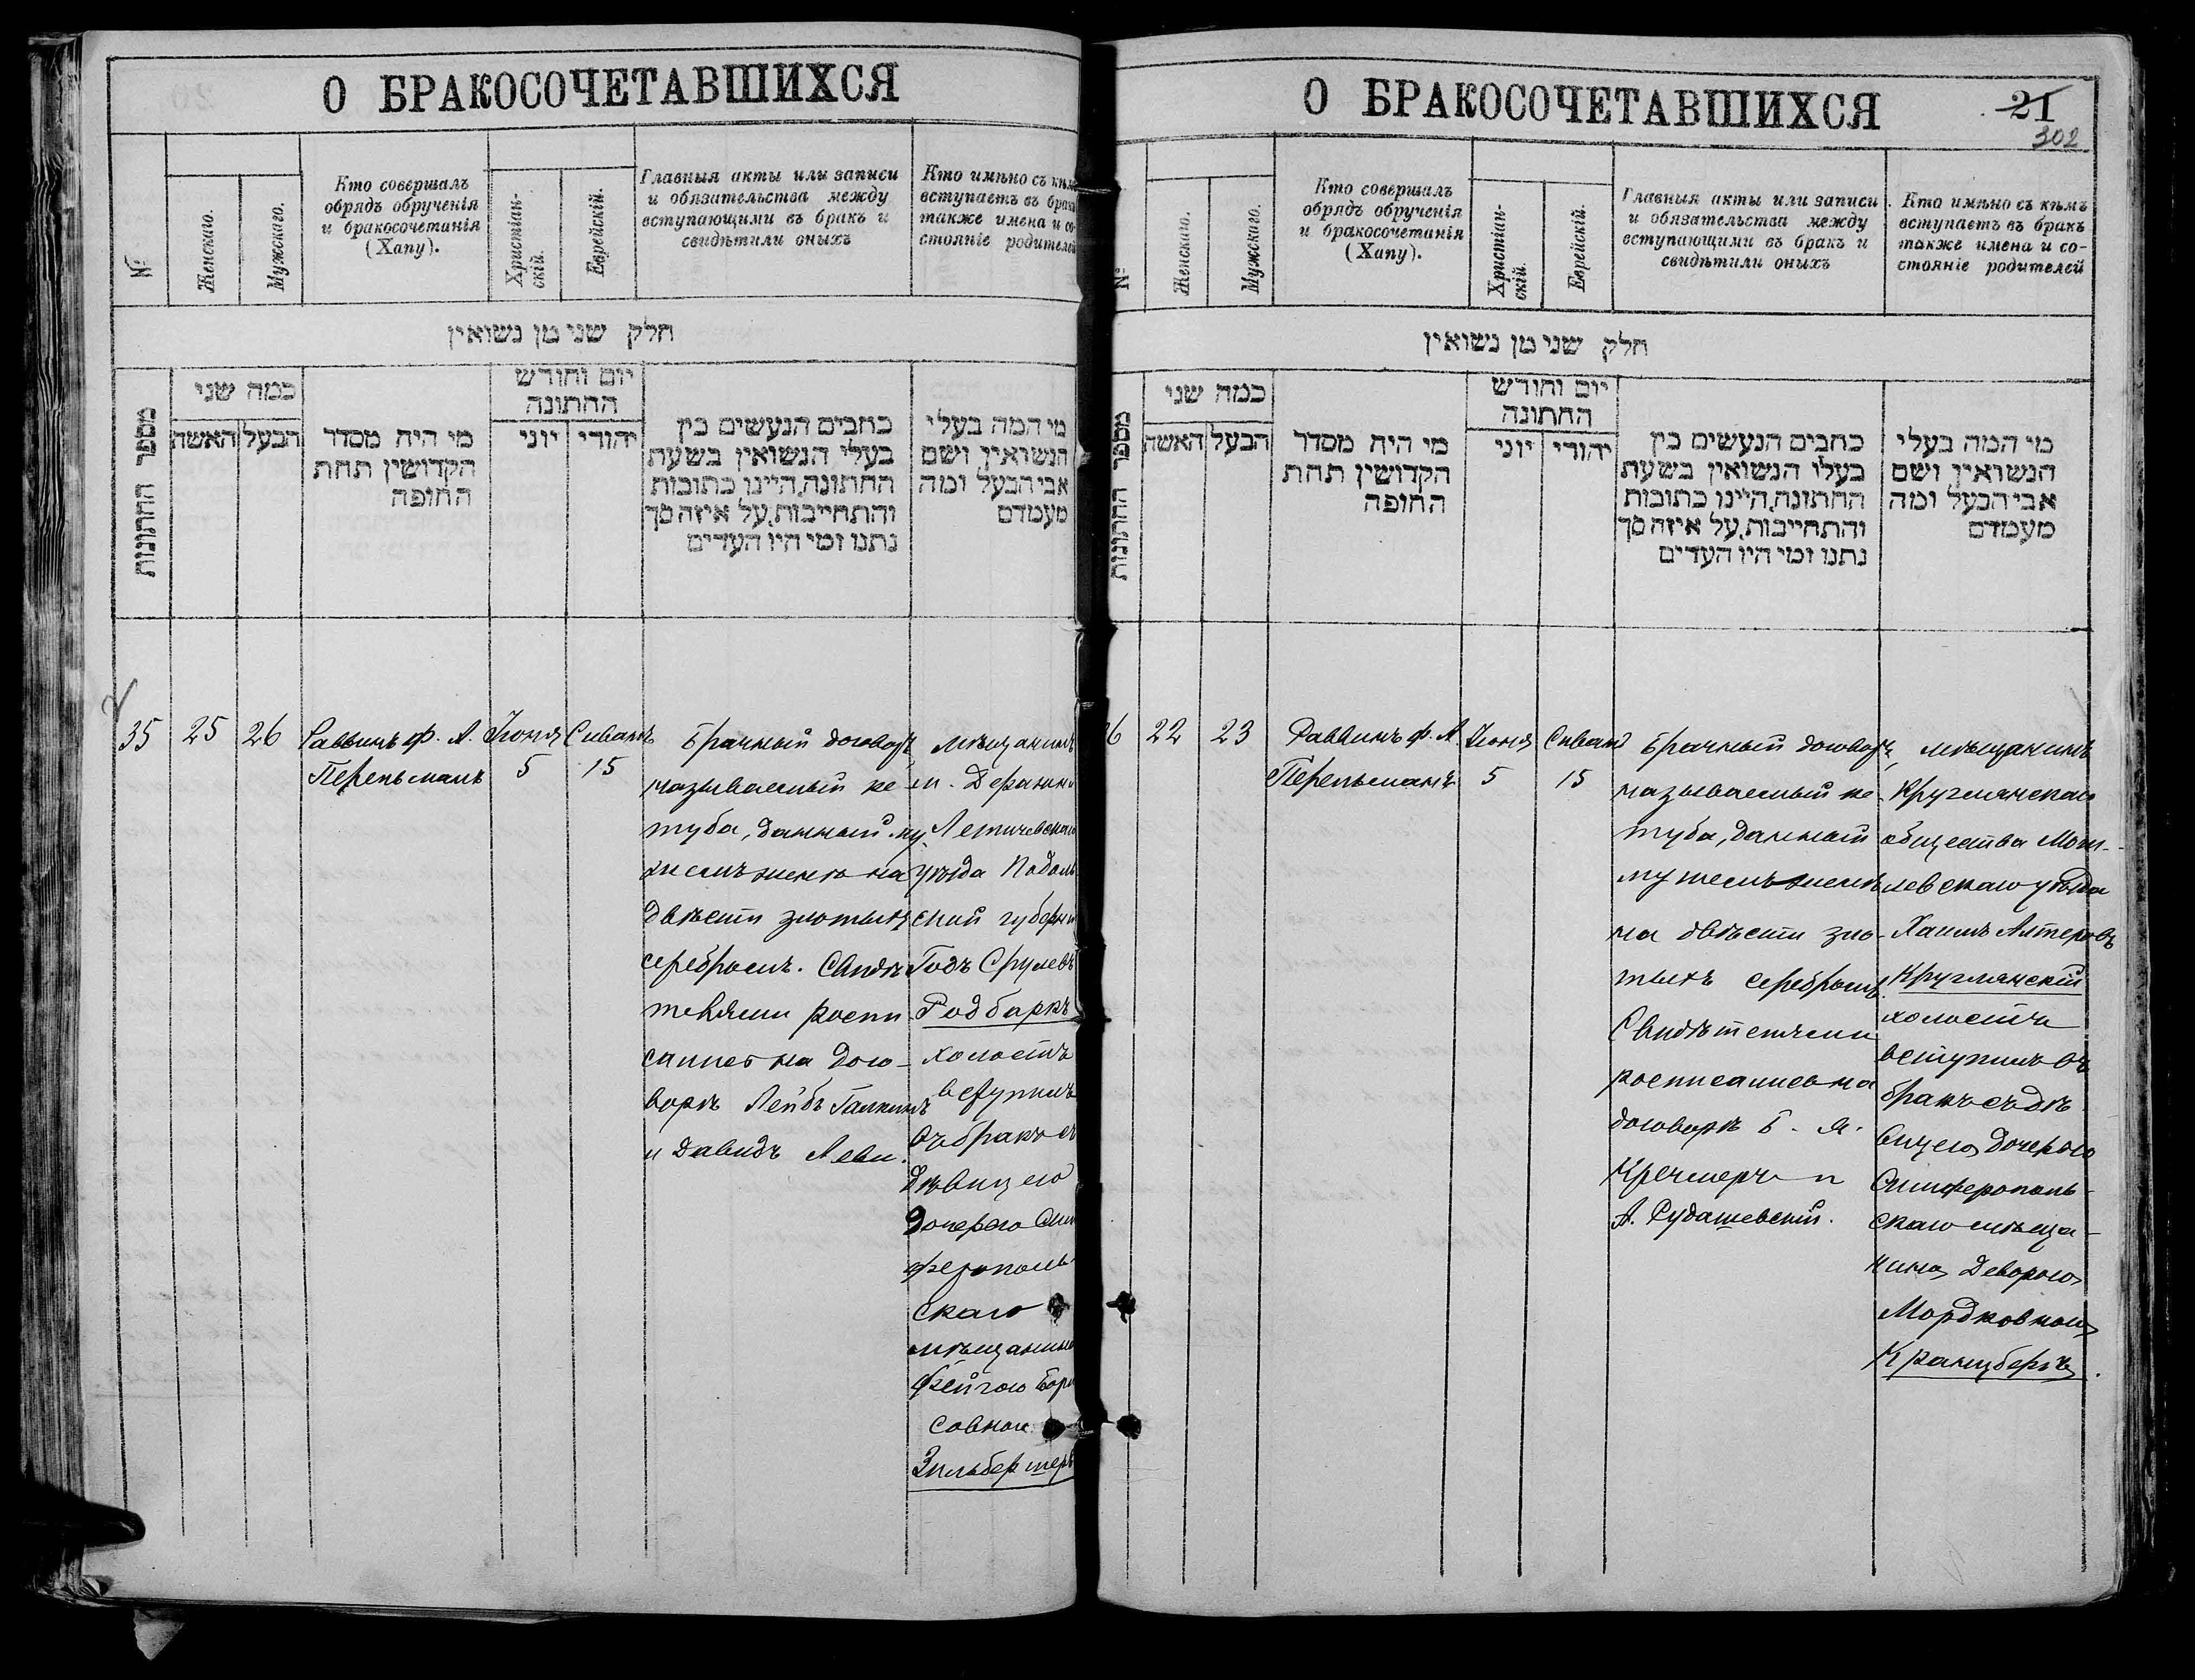 О БРАКОСОЧЕТАВШИХСЯ
№
Женскаго.
Мужскаго.
Кто совершалъ
обрядъ обрученія
и бракосочетанія
(Хапу).
Христіан-
скій.
Еврейскій.
Главныя акты или записи
и обязательства между
вступающими въ бракъ и
свидѣтили оныхъ
Кто имѣно съ кѣмъ
вступаетъ въ бракъ
также имена и со-
стояніе родителей
חלק שני מן נשואין
מספר החתונות
כמה שני
האשה
הבעל
מי היה מסדר
הקדושין תחת
החופה
יום וחודש
החתונה
יוני
יהודי
כתבים הנעשים בין
בעלי הנשואין בשעת
החתונה, היינו כתובות
והתחייבות, על איזה סך
נתנו ומי היו העדים
מי המה בעלי
הנשואין ושם
אבי הבעל ומה
מעמדם
35
25
26
Раввинъ Ф. А.
Перельманъ
Іюня
5
Сиванъ
15
Брачный договоръ,
называемый ке-
туба, данный му-
жемъ женѣ на
двѣсти злотыхъ
серебромъ. Свидѣ-
телями роспи-
сались на дого-
ворѣ Лейбъ Галкинъ
и Давидъ Леви.
мѣщанинъ
м. Деражни
Летичевскаго
уѣзда Подоль
ской губерніи
Годъ Срулевъ
Годбаркъ
холостъ
вступилъ
въ бракъ съ
дѣвицею
дочерью Сим
ферополь
скаго
мѣщанина
Фейгою Бори
совною
Зильбершеръ
О БРАКОСОЧЕТАВШИХСЯ
21
302
№
Женскаго.
Мужскаго.
Кто совершалъ
обрядъ обрученія
и бракосочетанія
(Хапу).
Христіан-
скій.
Еврейскій.
Главныя акты или записи
и обязательства между
вступающими въ бракъ и
свидѣтили оныхъ
Кто имѣно съ кѣмъ
вступаетъ въ бракъ
также имена и со-
стояніе родителей
חלק שני מן נשואין
מספר החתונות
כמה שני
האשה
הבעל
מי היה מסדר
הקדושין תחת
החופה
יום וחודש
החתונה
יוני
יהודי
כתבים הנעשים בין
בעלי הנשואין בשעת
החתונה, היינו כתובות
והתחייבות, על איזה סך
נתנו ומי היו העדים
מי המה בעלי
הנשואין ושם
אבי הבעל ומה
מעמדם
36
22
23
Раввинъ Ф. А.
Перельманъ
Іюня
5
Сиванъ
15
Брачный договоръ,
называемый ке-
туба, данный
мужемъ женѣ
на двѣсти зло-
тыхъ серебромъ.
Свидѣтелями
росписались на
договорѣ Б. Я.
Кремеръ и
А. Рудашевскій.
мѣщанинъ
Круглянскаго
общества Моги-
левскаго уѣзда
Хаимъ Алтеровъ
Круглянскій
холостъ
вступилъ въ
бракъ съ дѣ
вицею дочерью
Симферополь-
скаго мѣща-
нина Деворою
Мордковною
Кранцбергъ.